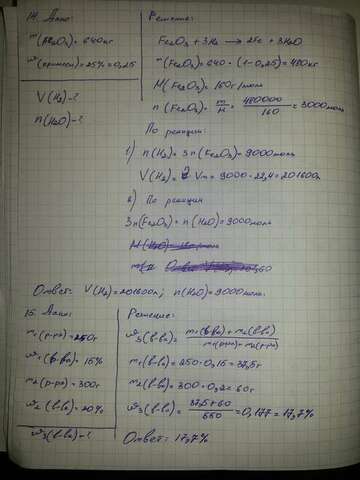 14. Дано:
m(Fe2O3)=640кг
w(примеси)=25%=0,25
V(H2)-?
n(H2O)-?
Решение:
Fe2O3 + 3H2 → 2Fe + 3H2O
m(Fe2O3)=640·(1-0,25)=480кг
M(Fe2O3)=160г/моль
n(Fe2O3)=m/M=480000/160=3000моль
По реакции:
1) n(H2)=3n(Fe2O3)=9000моль
V(H2)=Vn=9000·22,4=201600л
2) По реакции
3n(Fe2O3)=n(H2O)=9000моль
Ответ: V(H2)=201600л; n(H2O)=9000моль.
15. Дано:
m1(р-ра)=250г
w1(в-ва)=15%
m2(р-ра)=300г
w2(в-ва)=20%
w3(в-ва)-?
Решение:
w3(в-ва)=m1(в-ва)+m2(в-ва)/m1(р-ра)+m2(р-ра)
m1(в-ва)=250·0,15=37,5г
m2(в-ва)=300·0,2=60г
w3(в-ва)=37,5+60/550=0,177=17,7%
Ответ: 17,7%